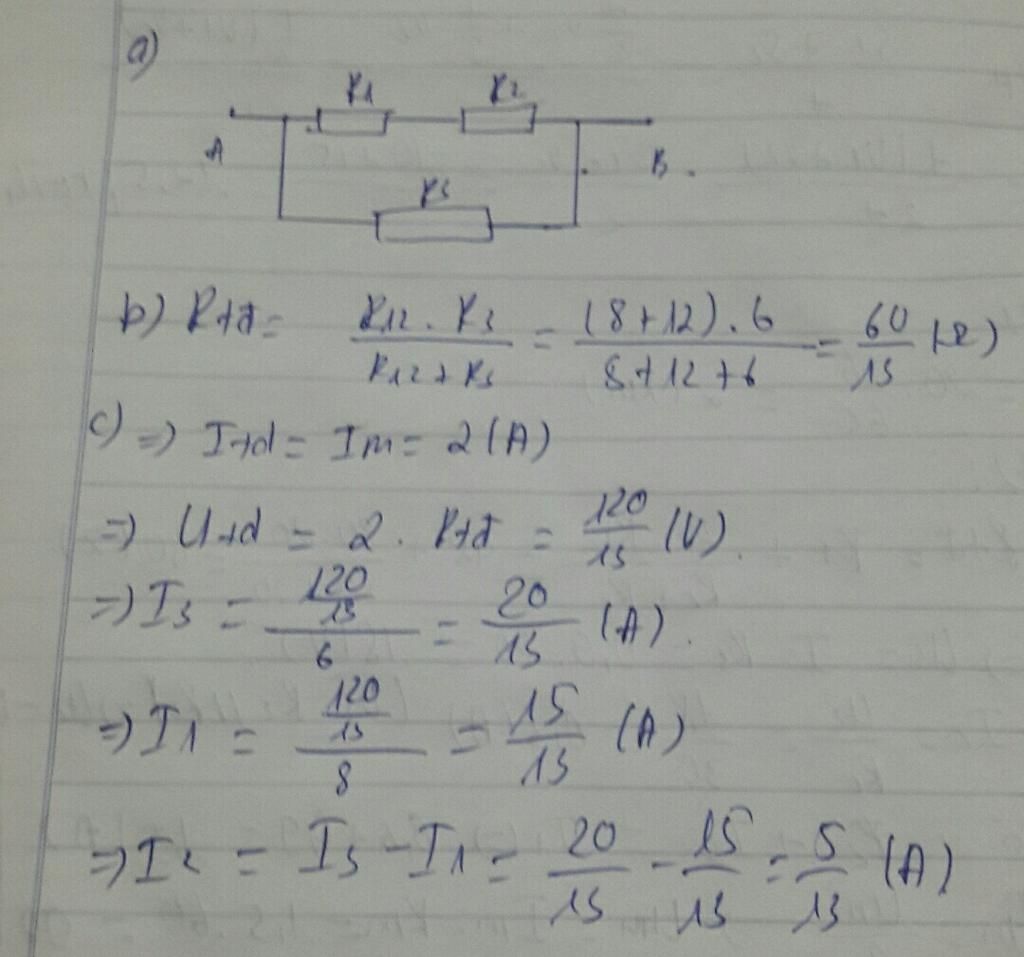 a)
R1 R2
A B.
R3
b) Rtđ = R12 . R3 / R12 + R3 = (8 + 12) . 6 / 8 + 12 + 6 = 60/13 (Ω)
c) => Itd = Im = 2 (A)
=> Utd = 2 . Rtđ = 120/13 (V).
=> I3 = 120/13 / 6 = 20/13 (A).
=> I1 = 120/13 / 8 = 15/13 (A)
=> I2 = I3 - I1 = 20/13 - 15/13 = 5/13 (A)